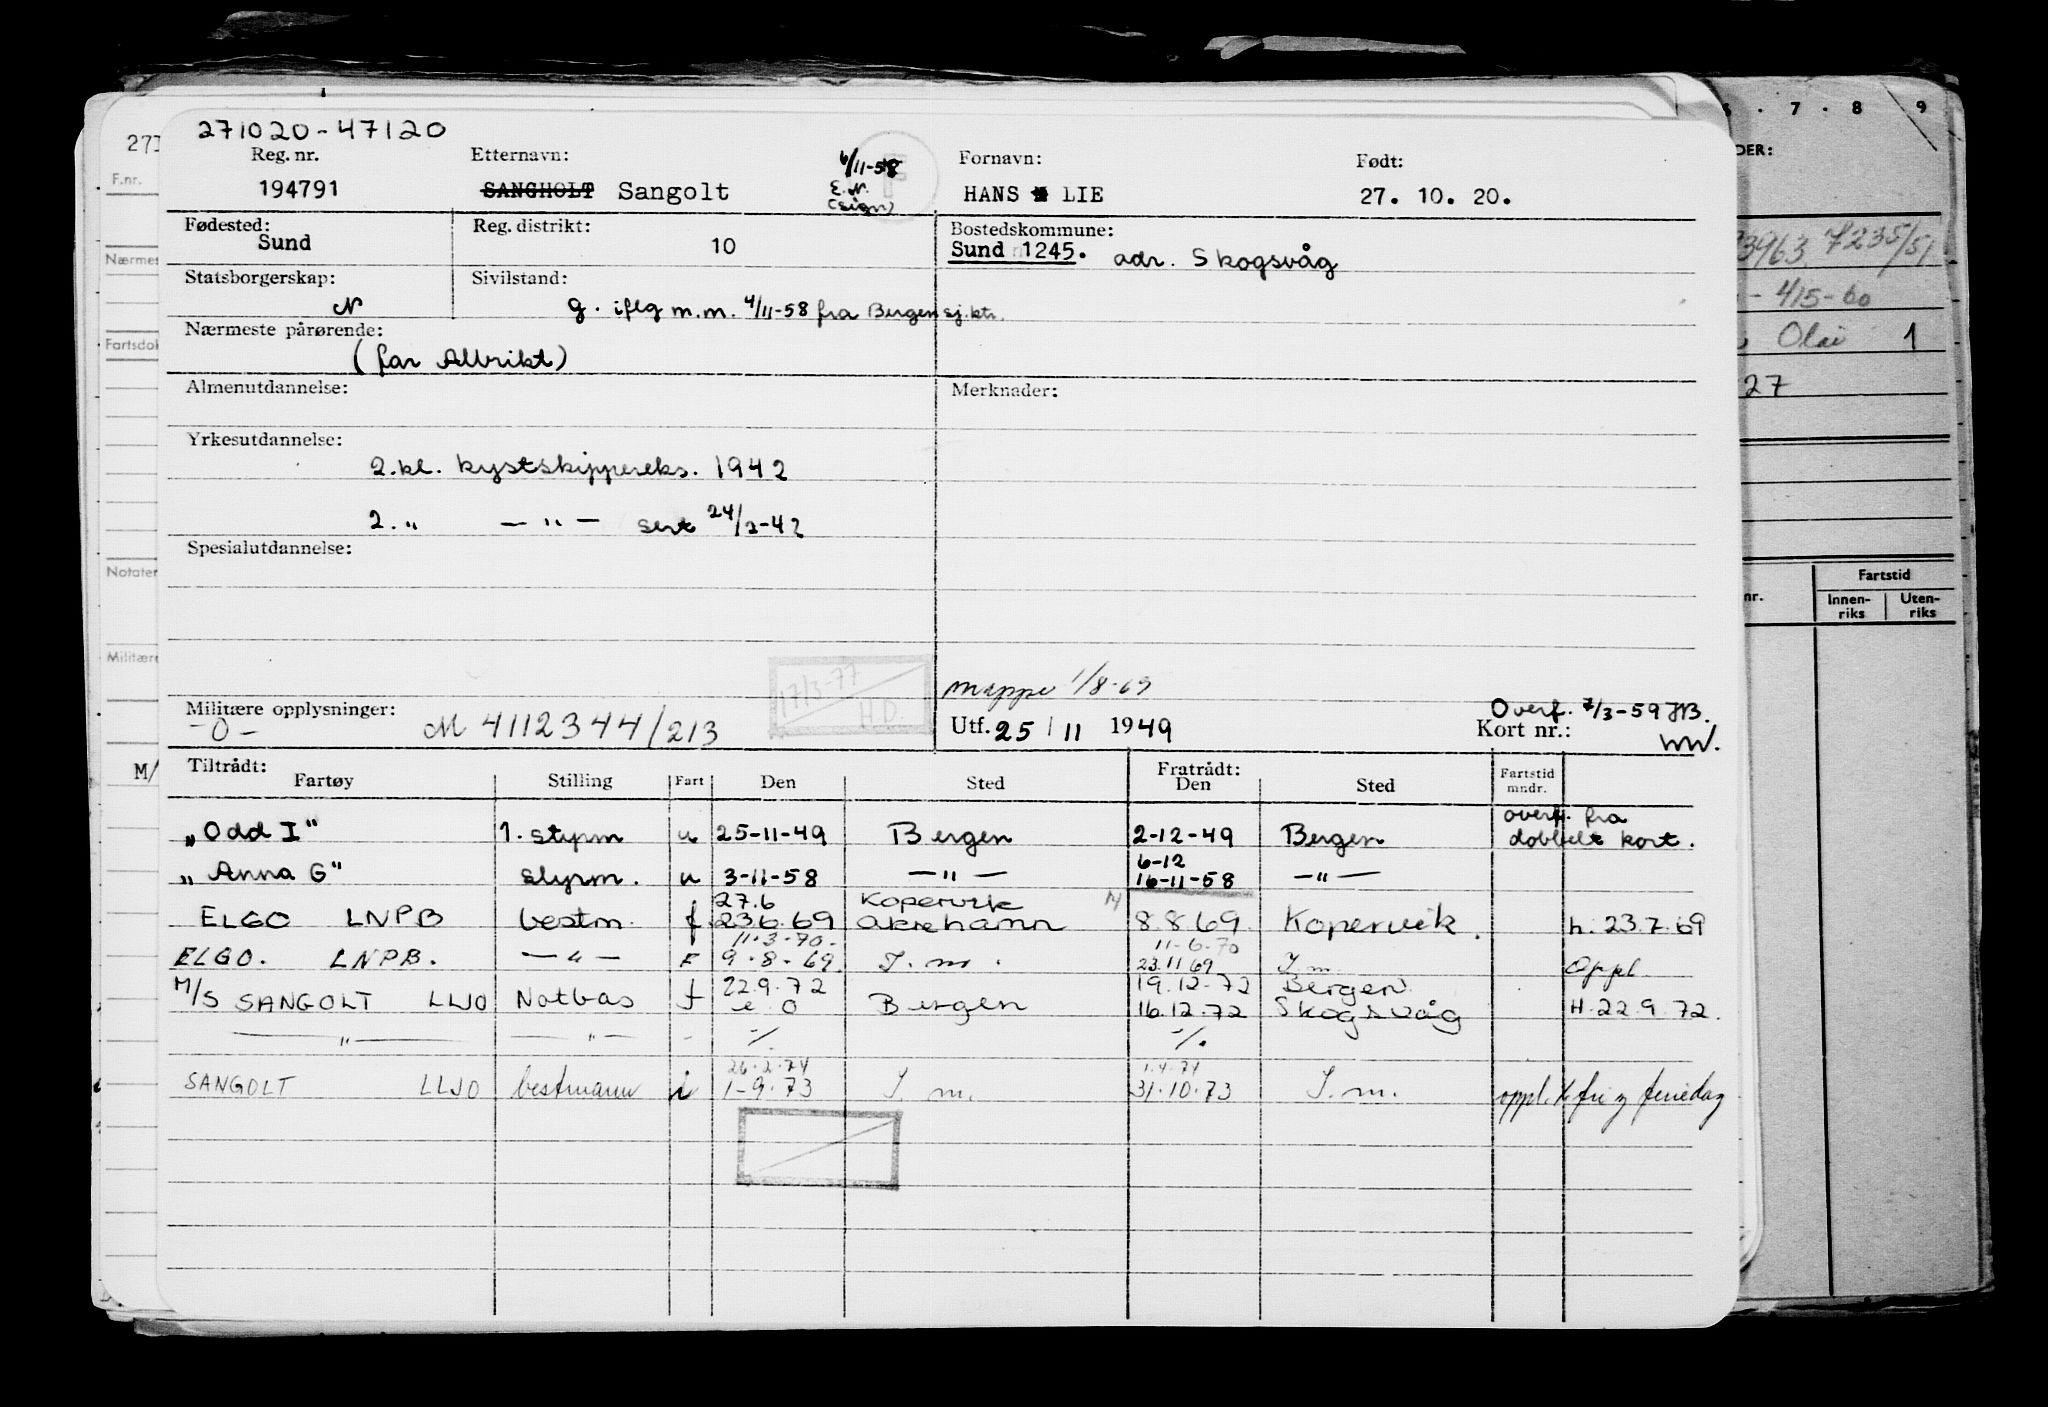 271020-47120
Reg. nr. Etternavn: 6/11-58 Fornavn: Født:
194791 SANGHOLT Sangolt E.N. (sign) HANS LIE 27. 10. 20.
Fødested: Reg. distrikt: Bostedskommune:
Sund 10 Sund 1245. adr. Skogsvåg
Statsborgerskap: Sivilstand:
N g. iflg m.m. 4/11-58 fra Bergen sj.ktr.
Nærmeste pårørende:
(far Albrikt)
Almenutdannelse: Merknader:
Yrkesutdannelse:
2.kl. kystskippereks. 1942
2. " — " — sert 24/3-42
Spesialutdannelse:
17/3-77
H.D.
mappe 1/8-69
Militære opplysninger: Overf. 7/3-59 HB.
-0- M 4112344/213 Utf. 25/11 1949 Kort nr.: WW.
Tiltrådt: Fratrådt:
Fartøy Stilling Fart Den Sted Den Sted Fartstid mndr.
„Odd I" 1. styrm u 25-11-49 Bergen 2-12-49 Bergen overf. fra dobbelt kort.
6-12
„Anna G" styrm. u 3-11-58 — " — 16-11-58 — " —
27.6 Kopervik
ELGO LNPB bestm. f 23.6.69 Akrehamn 8.8.69. Kopervik. h. 23.7.69
11.3.70- 11-6-70
ELGO. LNPB. — " — F 9.8.69. I.m. 23.11 69 I m Oppl.
22.9.72 19.12-72 Bergen.
M/S SANGOLT LLJO Notbas f e. O Bergen 16.12.72 Skogsvåg H.22.9.72.
— " — — " — - -/- -/.
26.2.74 1.4.74
SANGOLT LLJO bestmann i 1-9.73 I.m. 31.10.73 I.m. oppl. fri og feriedag
F.nr.
Nærmes
Fartsdok
Notater
Militære
M/
7 . 8 9
DER:
3963 7235/51
- 415-60
Olai 1
27
nr. Fartstid
Innen-riks Uten-riks